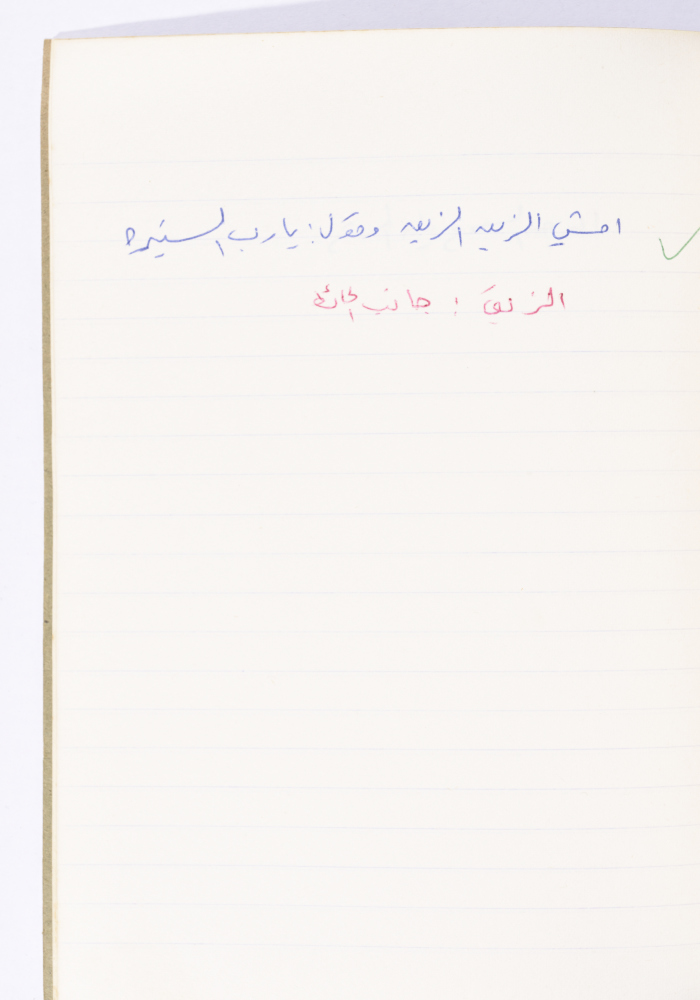 امشي الزيق الزيق وقول: يا رب الستيره
الزيق : جانب الحائط